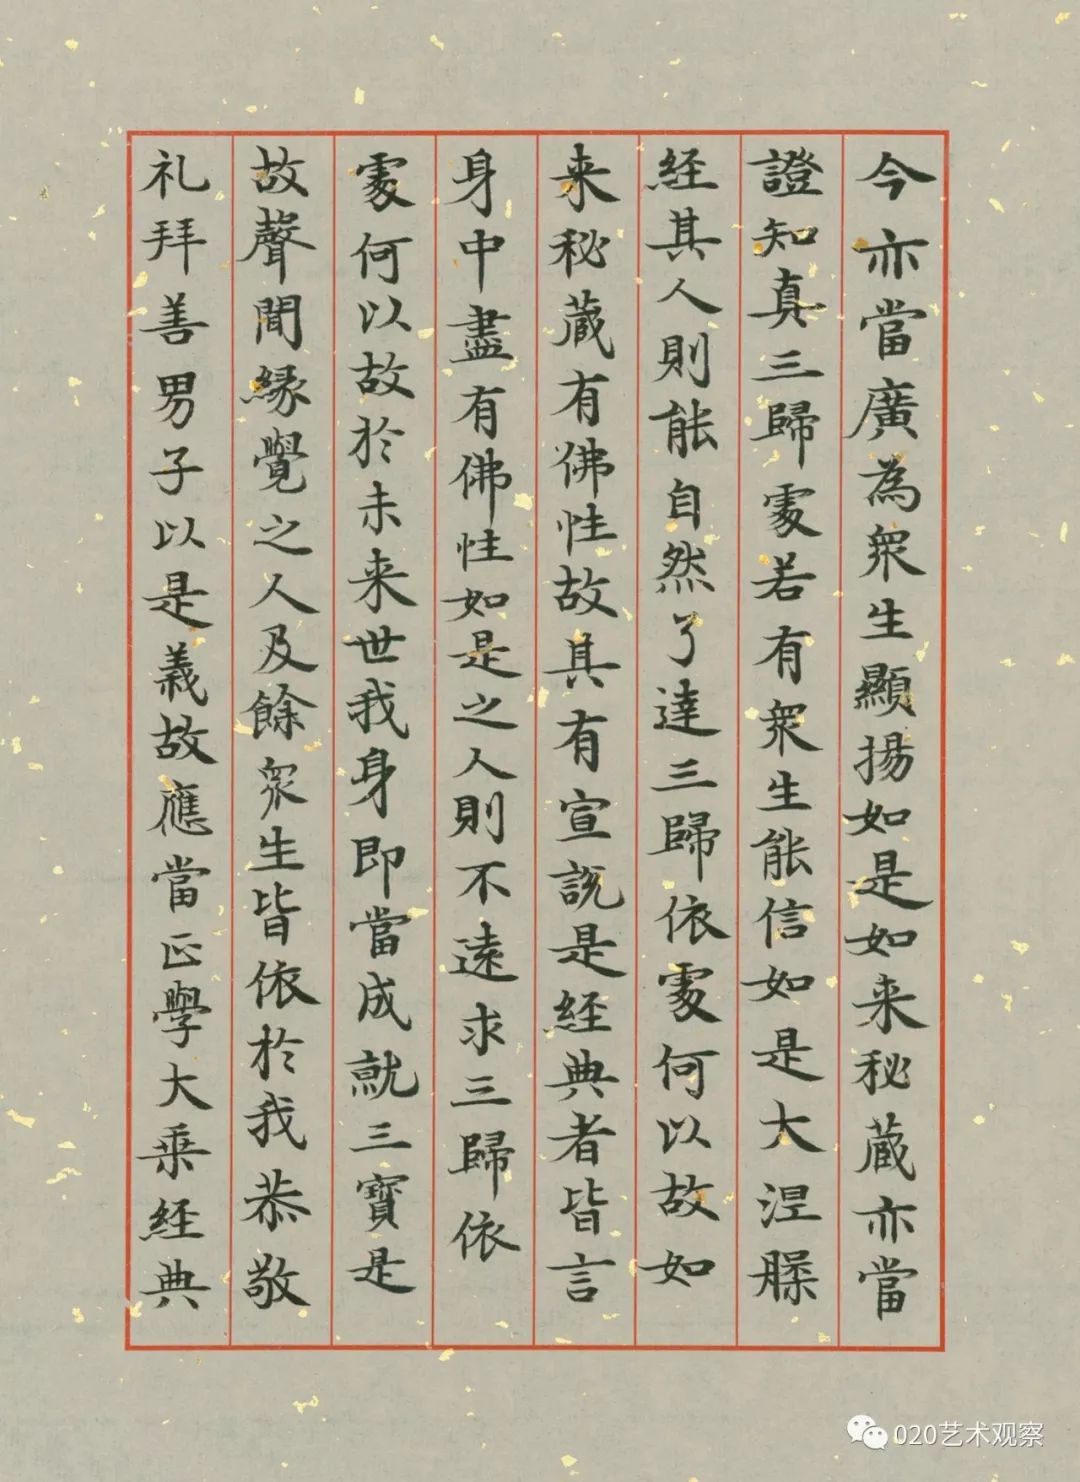 今亦當廣為衆生顯揚如是如来秘蔵亦當
證知真三歸處若有衆生能信如是大涅槃
経其人則能自然了達三歸依處何以故如
来秘蔵有佛性故其有宣說是経典者皆言
身中盡有佛性如是之人則不遠求三歸依
處何以故於未来世我身即當成就三寶是
故聲聞縁覺之人及餘衆生皆依於我恭敬
礼拜善男子以是義故應當正學大乗経典
020艺术观察